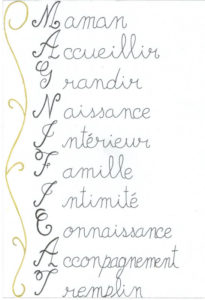 Maman
Accueillir
Grandir
Naissance
Intérieur
Famille
Intimité
Connaissance
Acconpagnement
Tremplin